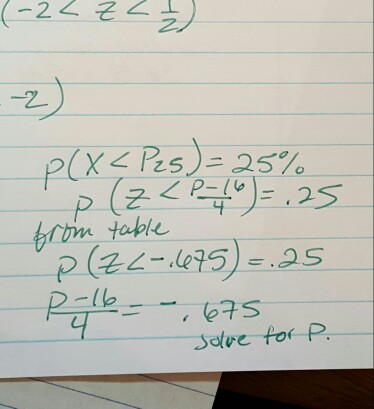 (-2 < z < 1/2)
-2)
P(X < P25) = 25%
P (z < P-16/4) = .25
from table
P (z < -.675) = .25
P-16/4 = -.675
solve for P.